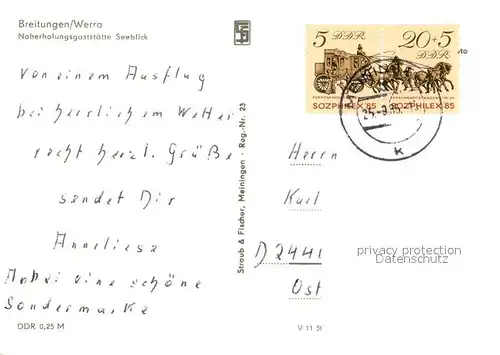 Breitungen/Werra
Naherholungsgaststätte Seeblick
von einem Ausflug
bei herrlichem Wetter
recht herzl. Grüße
sendet Dir
Anneliese
Anbei eine schöne
Sondermarke
DDR 0,25 M
Straub & Fischer, Meiningen · Reg.-Nr. 23
5 DDR
SOZPHILEX 85
20+5
DDR
SOZPHILEX 85
k
Herrn
Karl
D 2441
Ost
V 11 50
privacy protection
Datenschutz